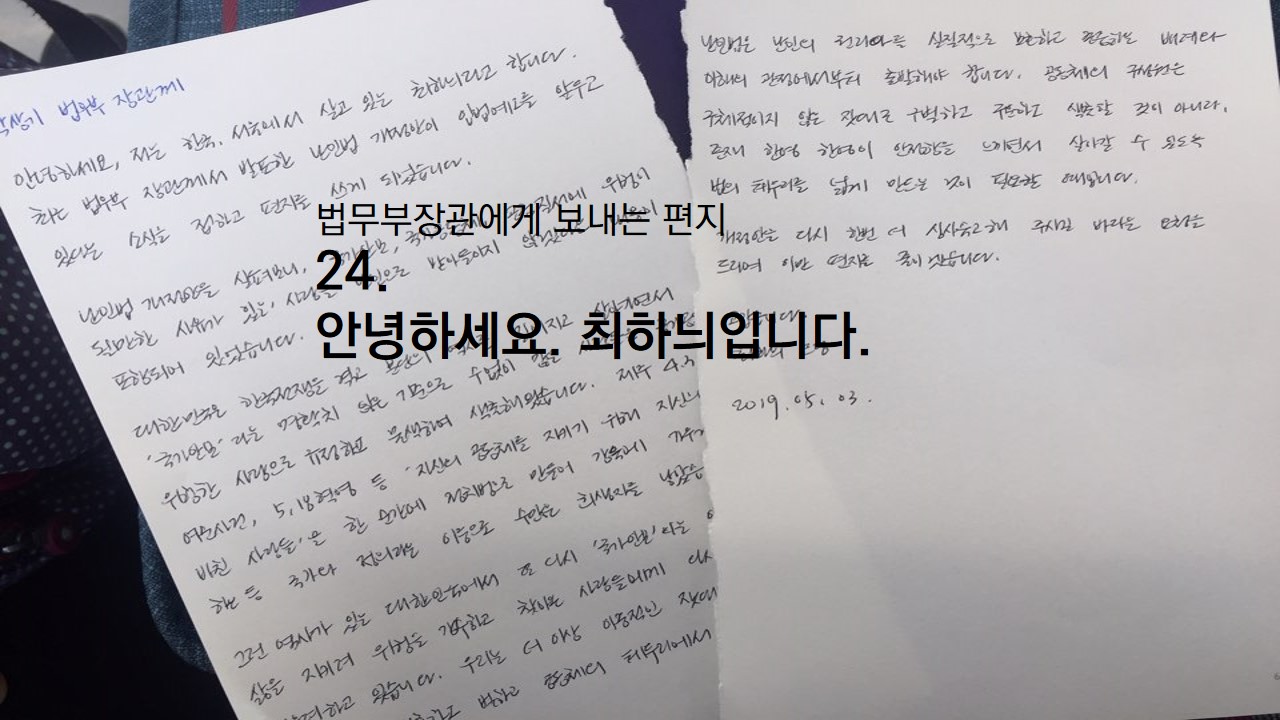 박상기 법무부 장관께
안녕하세요, 저는 한국, 서울에서 살고 있는 최하늬라고 합니다.
저는 법무부 장관께서 발표한 난민법 개정안이 입법예고를 앞두고
있다는 소식을 접하고 편지를 쓰게 되었습니다.
난민법 개정안을 살펴보니, 국가안보, 위험이
될만한 사유가 있는 사람을 난민으로 받아들이지 않겠다는
포함되어 있었습니다.
대한민국은 한국전쟁을 겪고 분단의 가지고 살아가면서
'국가안보'라는 명확치 않은 기준으로 수없이 많은
위험한 사람으로 규정하고 색출해왔습니다. 제주 4.3
여순사건, 5.18혁명 등 '자신의 공동체를 지키기 위해 자신
바친 사람들'을 한 순간에 정치범으로 만들어 감옥에 가두
하는 등 국가나 정의라는 이름으로 수많은 희생자를 낳았습
그런 역사가 있는 대한민국에서 또 다시 '국가안보'라는
삶을 지키려 위험을 감수하고 찾아온 사람들에게 다시
있습니다. 우리는 더 이상 이중적인 잣대
공동체의 테두리에서
법무부장관에게 보내는 편지
24.
안녕하세요. 최하늬입니다.
난민법은 난민의 권리를 실질적으로 보호하고 배려와
이해의 관점에서부터 출발해야 합니다. 공동체의 구성원은
구체적이지 않은 잣대로 구별하고 색출할 것이 아니라,
존재 한명 한명이 안전함을 느끼면서 살아갈 수 있도록
법의 테두리를 넓게 만드는 것이 필요할 때입니다.
개정안을 다시 한번 더 심사숙고해 주시길 바라는 요청을
드리며 이만 편지를 줄이겠습니다.
2019. 05. 03.